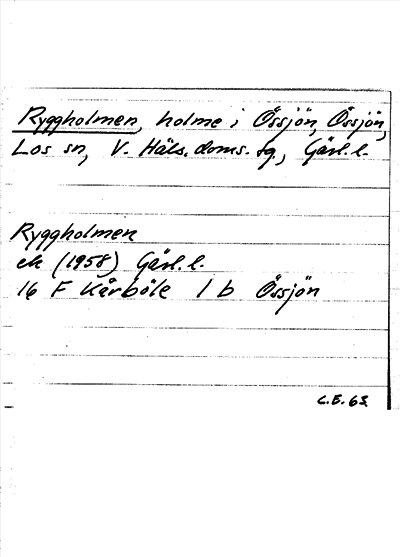 Ryggholmen, holme i Össjön, Össjön,
Los sn, V. Häls. doms. tg., Gävl. l.
Ryggholmen
ek (1958) Gävl. l.
16 F Kårböle 1 b Össjön
C.E. 63